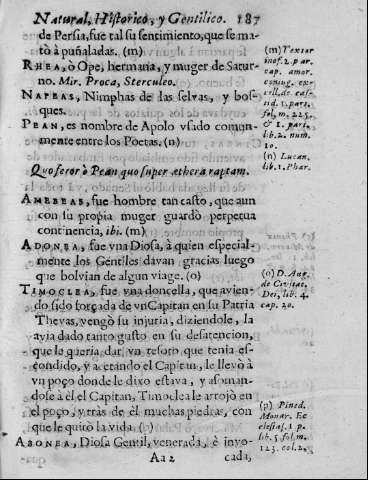 Natural, Historico, y Gentilico. 187
de Persia, fue tal su sentimiento, que se ma-
tò à puñaladas. (m)
RHEA, ò Ope, hermana, y muger de Satur-
no. Mir. Proca, Sterculeo.
NAPEAS, Nimphas de las selvas, y bos-
ques.
PEAN, es nombre de Apolo vsado comun-
mente entre los Poetas. (n)
Quo feror ò Pean quo super æthera raptam.
AMEBEAS, fue hombre tan casto, que aun
con su propia muger guardò perpetua
continencia, ibi. (m)
ADONEA, fue vna Diosa, à quien especial-
mente los Gentiles davan gracias luego
que bolvian de algun viage. (o)
TIMOCLEA, fue vna doncella, que avien-
do sido forçada de vn Capitan en su Patria
Thevas, vengò su injuria, diziendole, la
avia dado tanto gusto en su desatencion,
que le queria dar vn tesoro que tenia es-
condido, y acetando el Capitan, le llevò à
vn poço donde le dixo estava, y asoman-
dose à èl el Capitan, Timoclea le arrojò en
el poço, y tràs de èl muchas piedras, con
que le quitò la vida. (p)
ABONEA, Diosa Gentil, venerada, è invo-
Aa 2 cada,
(m) Textor
inof. 2. par.
cap. amor.
coniug. ex-
cell. de cas-
tid. 1. part.
fol. m. 225.
& 1. part.
lib. 2. num.
10.
(n) Lucan.
lib. 1. Phar.
(o) D. Aug.
de Civitat.
Dei, lib. 4.
cap. 20.
(p) Pined.
Monar. Ec
clesias. 1. p
lib. 5. fol. m.
123. col. 2.